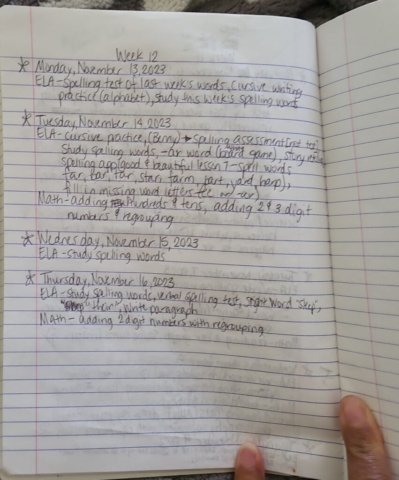 Week 12
* Monday, November 13, 2023
ELA - Spelling test of last week's words, cursive writing
practice (alphabet), study this week's spelling words
* Tuesday, November 14, 2023
ELA - cursive practice, (Benny) → spelling assessment
study spelling words, -ar word (board game), story
spelling app (good & beautiful lesson 7 - spell words
far, bar, tar, star, farm, part, yard, harp),
fill in missing word letters
Math - adding hundreds & tens, adding 2 & 3 digit
numbers & regrouping
* Wednesday, November 15, 2023
ELA - study spelling words
* Thursday, November 16, 2023
ELA - study spelling words, verbal spelling test, sight word "step",
"their", write paragraph
Math - adding 2 digit numbers with regrouping